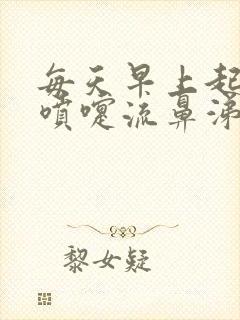 每天早上起
喷嚏流鼻涕
黎女疑